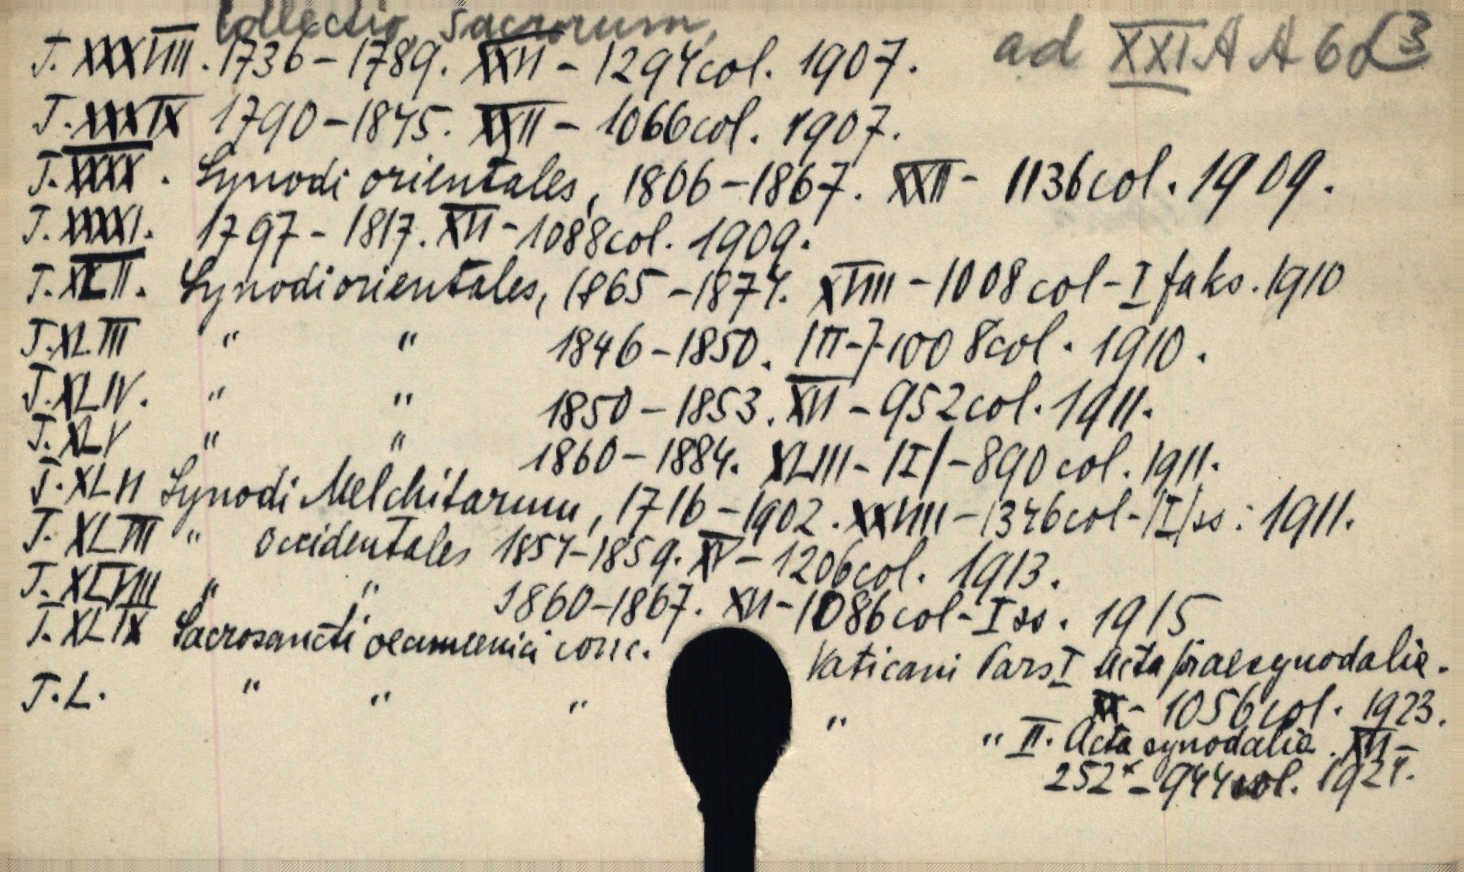 Collectio sacrorum,
ad XXI A A 6d (3
T. XXXVIII. 1736-1789. XXII - 1294 col. 1907.
T. XXXIX 1790-1845. XXII - 1066 col. 1907.
T. XXXX. Synodi orientales, 1806-1867. XXII - 1136 col. 1909.
T. XXXXI. 1797-1817. XII - 1088 col. 1909.
T. XLII. Synodi orientales, 1865-1874. XVIII - 1008 col - I faks. 1910
T. XLIII " " 1846-1850. III - 1008 col. 1910.
T. XLIV. " " 1850-1853. XII - 952 col. 1911.
T. XLV " " 1860-1884. XLIII - /I/ - 890 col. 1911.
T. XLVI Synodi Melchitarum, 1716-1902. XXVIII - 1346 col - /I/ ss: 1911.
T. XLVII " occidentales 1857-1859. XV - 1206 col. 1913.
T. XLVIII " " 1860-1867. XII - 1086 col - I ss. 1915
T. XLIX Sacrosancti oecumenici conc. Vaticani Pars I Acta praesynodalia.
XI - 1056 col. 1923.
T. L. " " " " " II. Acta synodalia. XII -
252* - 944 col. 1924.